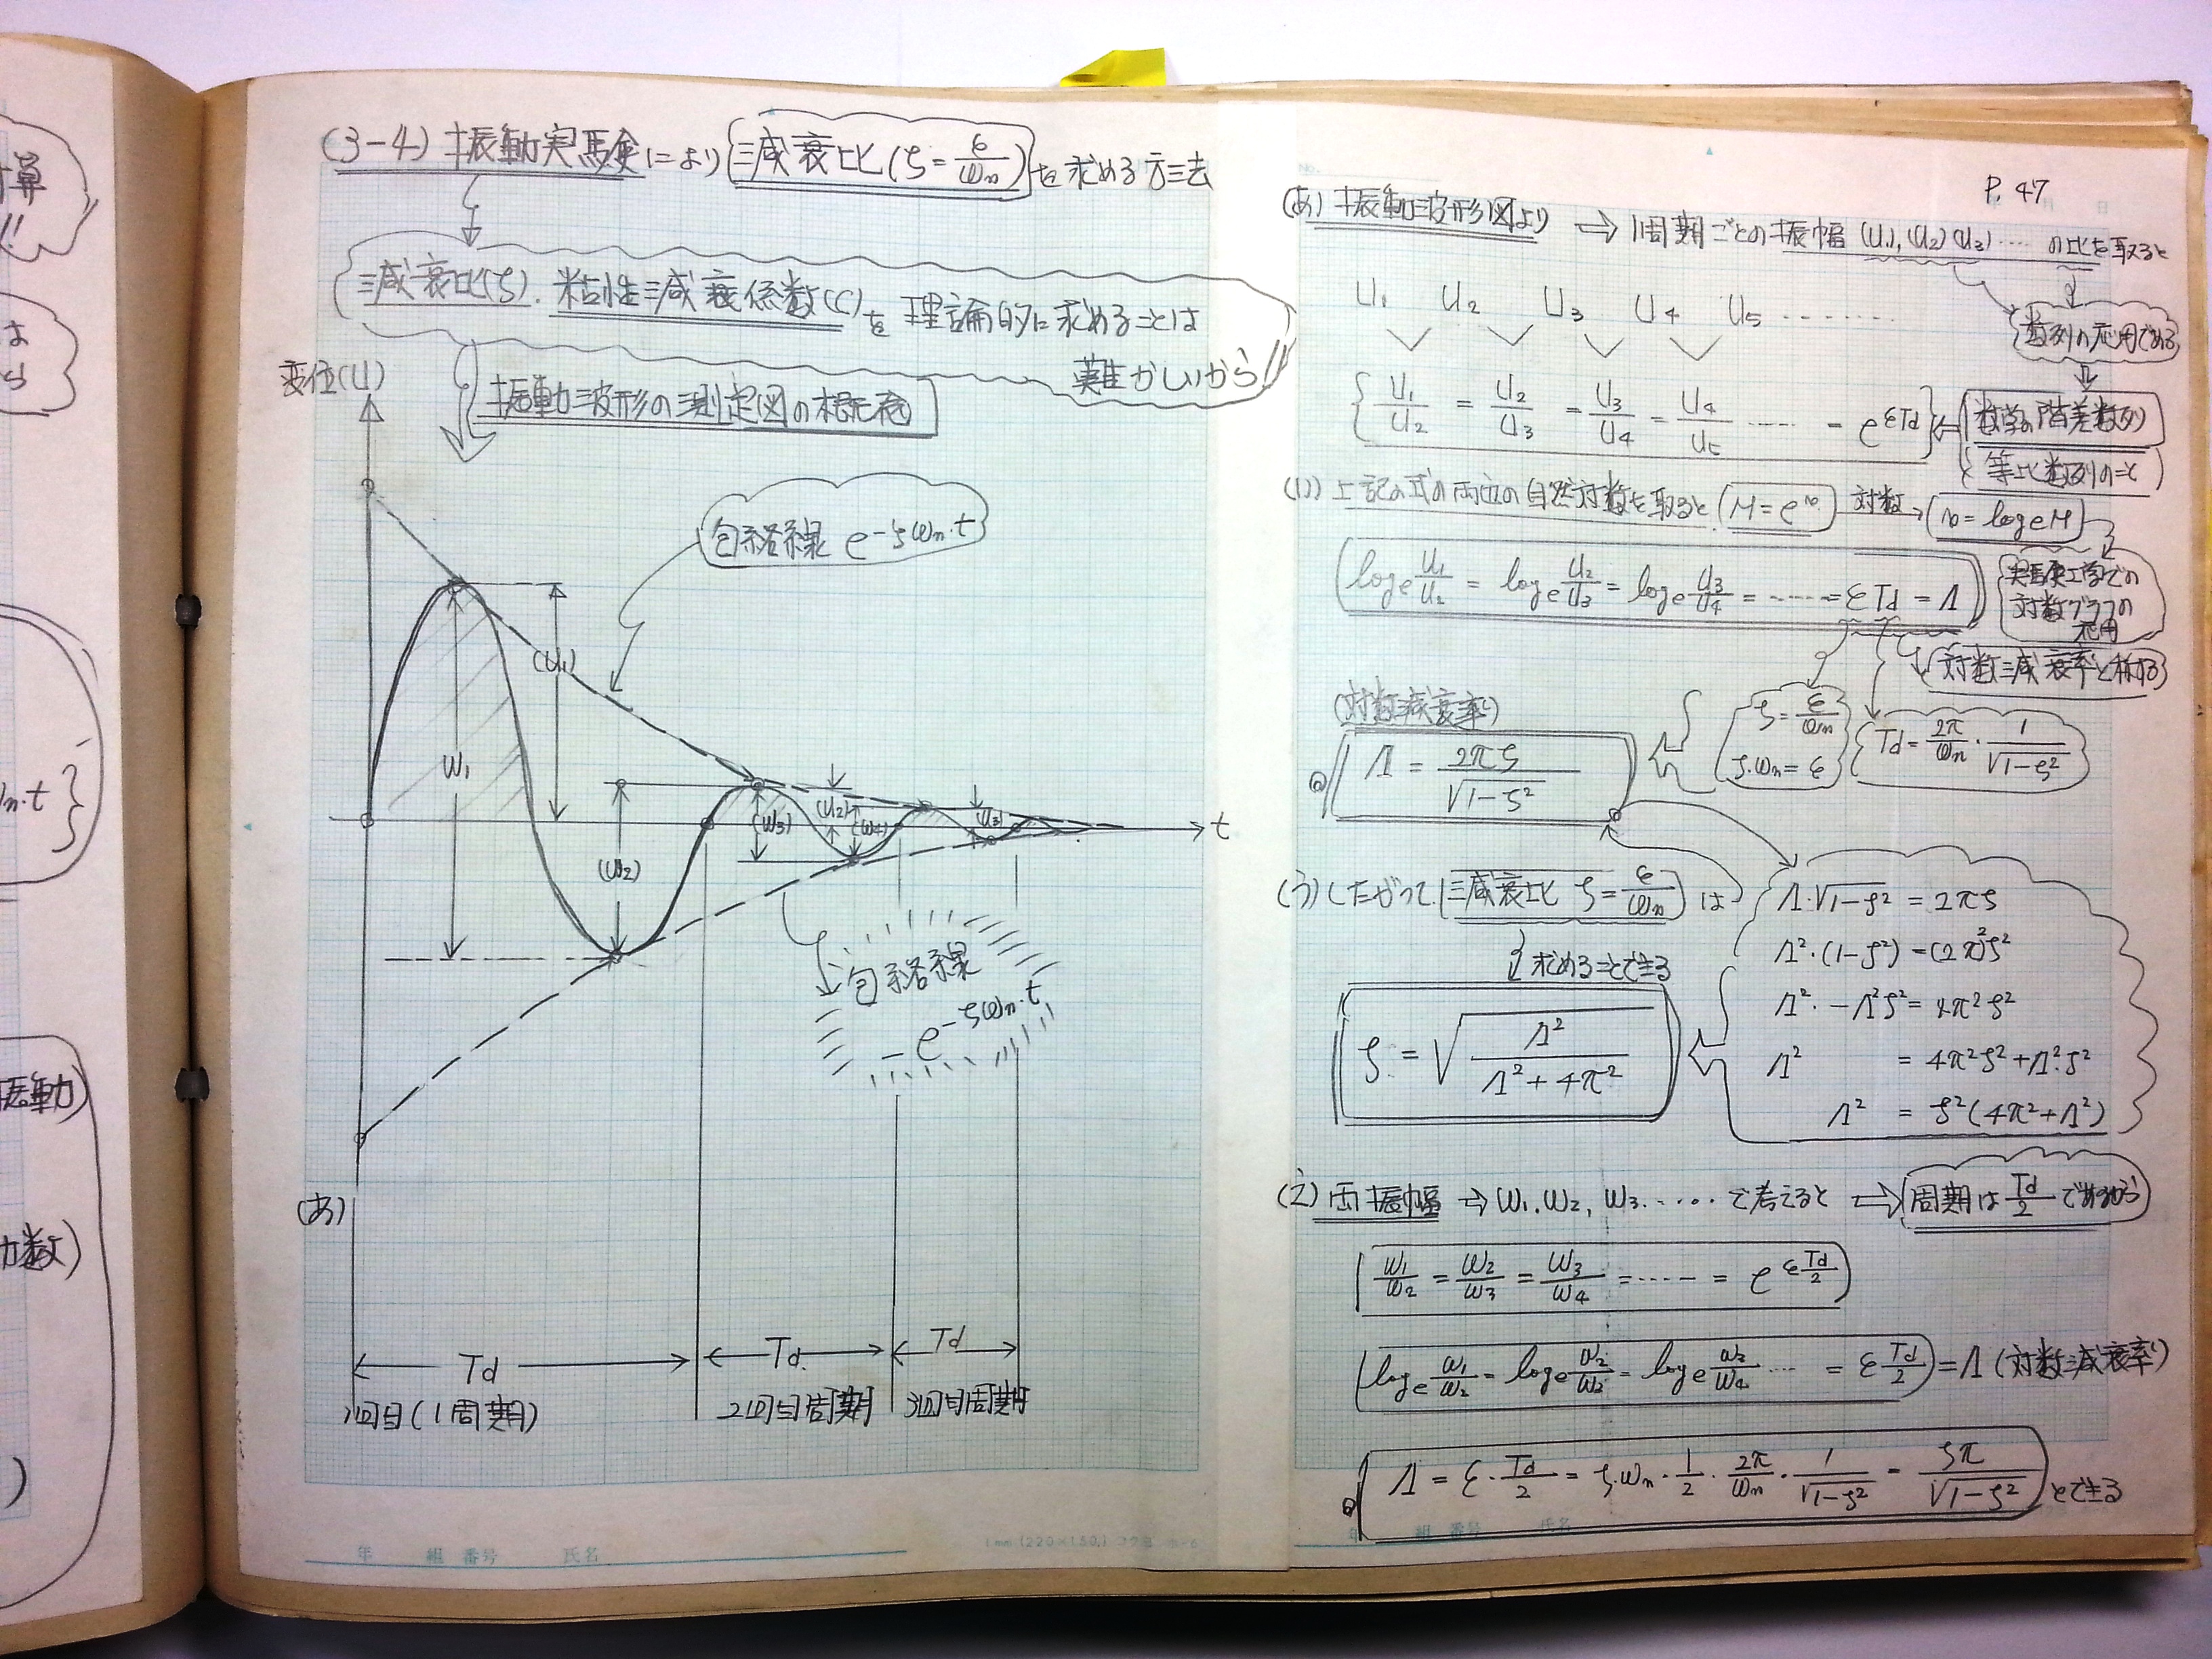 (3-4) 振動実験により 減衰比 (ζ = ε/ωn) を求める方法
減衰比(ζ)、粘性減衰係数(C)を理論的に求めることは
難かしいから!!
変位(U)
振動波形の測定図の概念
包絡線 e^-ζωn·t
(U1)
W1
(W2)
(W3)
(U2)
(W4)
(U3)
t
包絡線
-e^-ζωn·t
(あ)
Td
Td.
Td
1回目(1周期)
2回目周期
3回目周期
年 組 番号 氏名
P. 47
(あ) 振動波形図より ⇒ 1周期ごとの振幅 (U1), (U2) (U3) ‥‥ の比を取ると
U1 U2 U3 U4 U5 ‥‥‥
数列の応用である
U1/U2 = U2/U3 = U3/U4 = U4/U5 ‥‥ = e^εTd
数学の階差数列
等比数列のこと
(い) 上記の式の両辺の自然対数を取ると (M = e^n) 対数 → n = logeM
loge U1/U2 = loge U2/U3 = loge U3/U4 = ‥‥ = εTd = Λ
実験工学での
対数グラフの
応用
対数減衰率と称する
(対数減衰率)
Λ = 2πζ/√1-ζ²
ζ = ε/ωn
ζ·ωn = ε
Td = 2π/ωn · 1/√1-ζ²
(う) したがって 減衰比 ζ = ε/ωn は
求めることできる
ζ = √Λ²/Λ²+4π²
Λ·√1-ζ² = 2πζ
Λ²·(1-ζ²) = (2π)²ζ²
Λ²·-Λ²ζ² = 4π²ζ²
Λ² = 4π²ζ²+Λ²·ζ²
Λ² = ζ²(4π²+Λ²)
(え) 両振幅 → W1. W2, W3. ‥‥ で考えると ⇒ 周期は Td/2 であるから
W1/W2 = W2/W3 = W3/W4 = ‥‥ = e^ε Td/2
loge W1/W2 = loge W2/W3 = loge W3/W4 ‥‥ = ε Td/2 = Λ (対数減衰率)
Λ = ε · Td/2 = ζ·ωn · 1/2 · 2π/ωn · 1/√1-ζ² = ζπ/√1-ζ² とできる